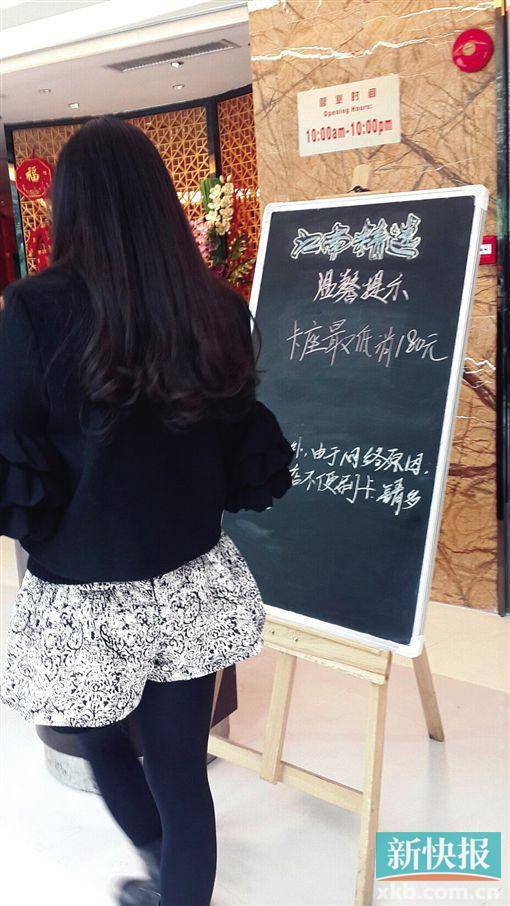 营业时间
Opening Hours:
10:00am-10:00pm
福
江南精选
温馨提示
卡座最低消180元
外,由于网络原因,
店不便刷卡,请多
新快报
xkb.com.cn